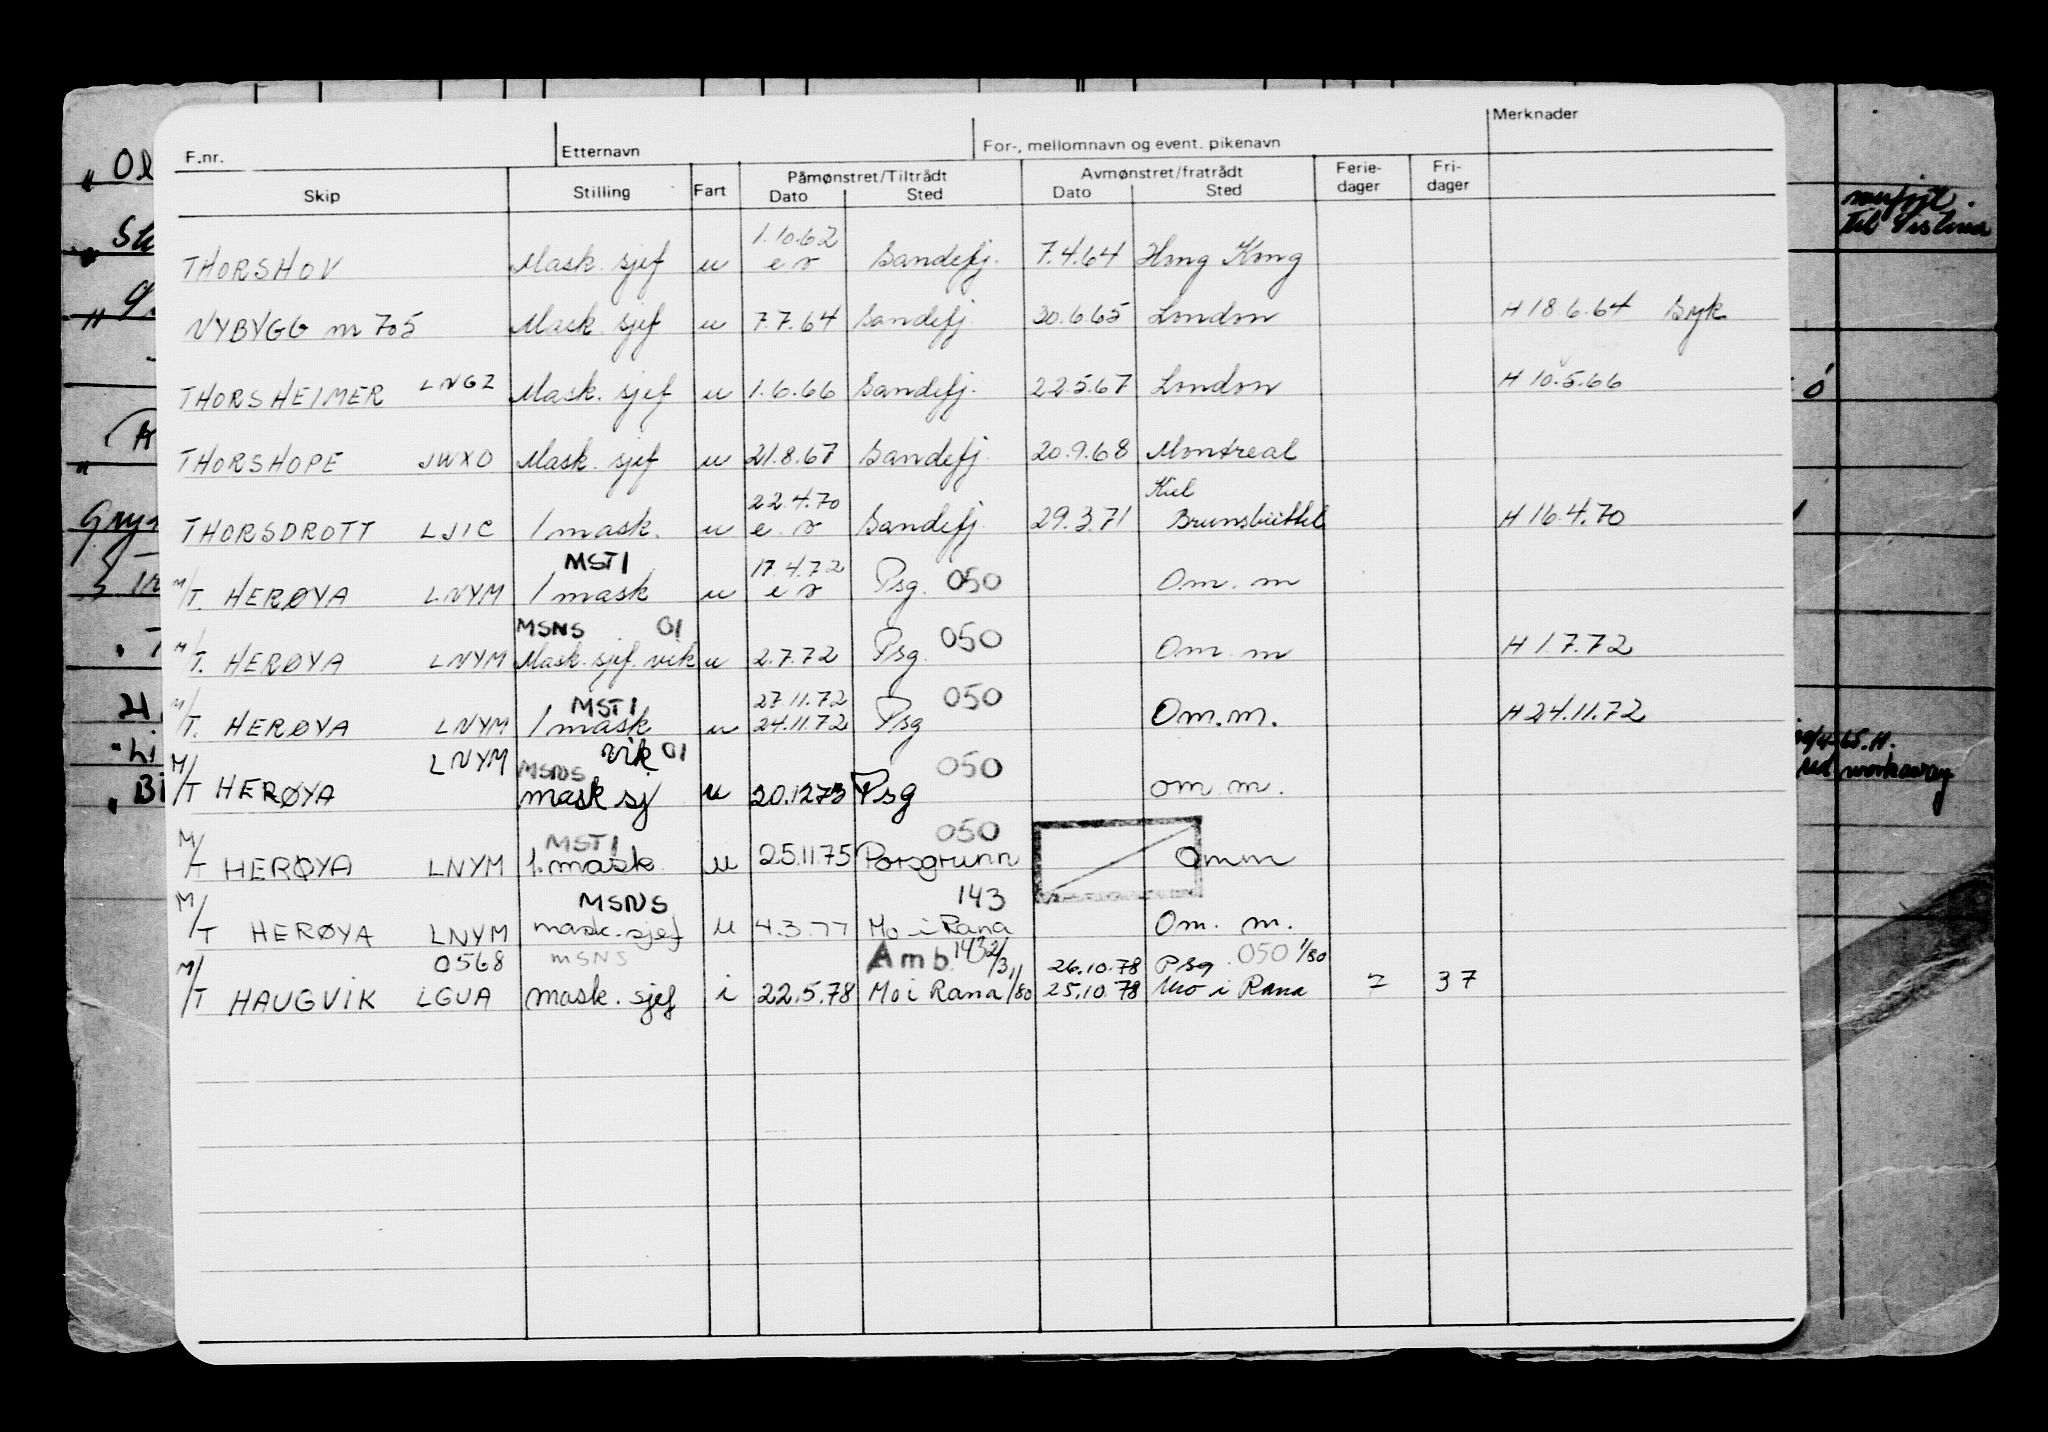 Merknader
F.nr. Etternavn For-, mellomnavn og event. pikenavn
Skip Stilling Fart Påmønstret/Tiltrådt Avmønstret/fratrådt Ferie-dager Fri-dager
Dato Sted Dato Sted
1.10.62
THORSHOV Mask. sjef u e r Sandefj. 7.4.64 Hong Kong
NYBYGG nr 705 Mask. sjef u 7.7.64 Sandefj. 30.6.65 London H 18.6.64 Syk
THORSHEIMER LNGZ Mask. sjef u 1.6.66 Sandefj. 22.5.67 London H 10.5.66
THORSHOPE JWXO Mask. sjef u 21.8.67 Sandefj. 20.9.68 Montreal
22.4.70 Kiel
THORSDROTT LJIC 1 mask. u e. r Sandefj. 29.3.71 Brunsbüttel H 16.4.70
MSTI 17.4.72
M/T. HERØYA LNYM 1 mask u e r Psg. 050 Om. m
MSNS 01 050
M/T. HERØYA LNYM Mask. sjef. vik u 2.7.72 Psg. Om. m H 1.7.72
MSTI 27.11.72 050
M/T. HERØYA LNYM 1 mask u 24.11.72 Psg Om.m. H 24.11.72
LNYM vik 01
MSNS 050
M/T HERØYA mask sj u 20.12.73 Psg om m.
MSTI 050
M/T HERØYA LNYM 1. mask. u 25.11.75 Porsgrunn Omm
MSNS 143
M/T HERØYA LNYM mask. sjef u 4.3.77 Mo i Rana Om. m.
0568 MSNS Amb. 143 2/3 26.10.78 Psg. 050 1/80
M/T HAUGVIK LGUA mask. sjef i 22.5.78 Mo i Rana 1/80 25.10.78 Mo i Rana 7 37
til
workaway